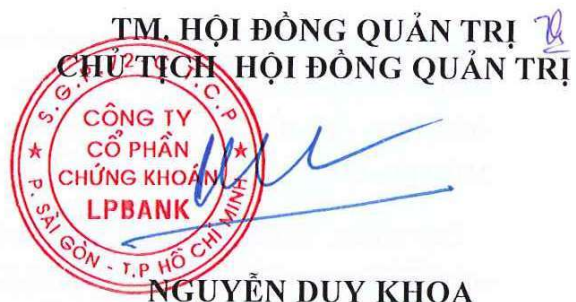 TM. HỘI ĐỒNG QUẢN TRỊ
CHỦ TỊCH HỘI ĐỒNG QUẢN TRỊ
CÔNG TY
CỔ PHẦN
CHỨNG KHOÁN
LPBANK
P. SÀI GÒN - T.P HỒ CHÍ MINH
NGUYỄN DUY KHOA